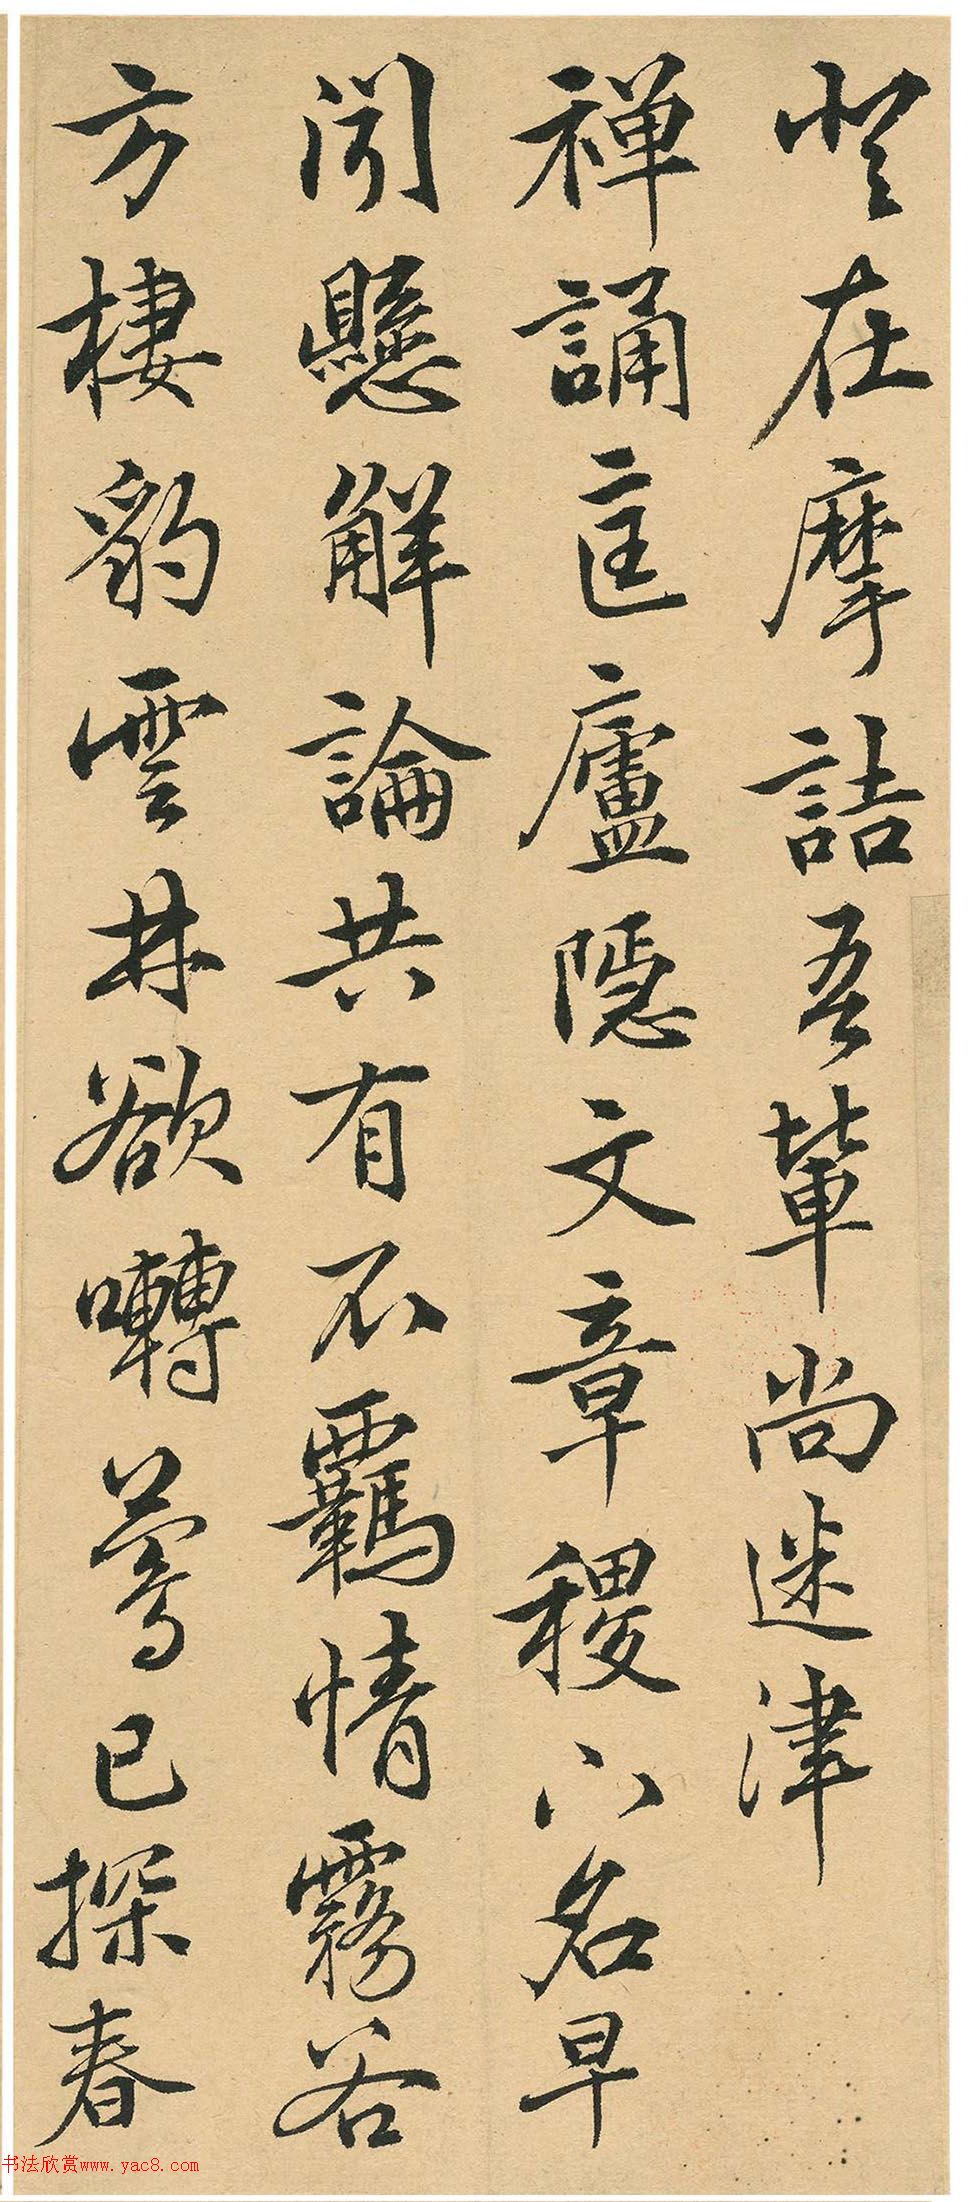 登在摩詰吾輩尚迷津
禅誦匡廬隠文章稷下名早
聞懸解論共有不羈情霧谷
方棲豹雲林欲囀鶯已探春
书法欣赏www.yac8.com